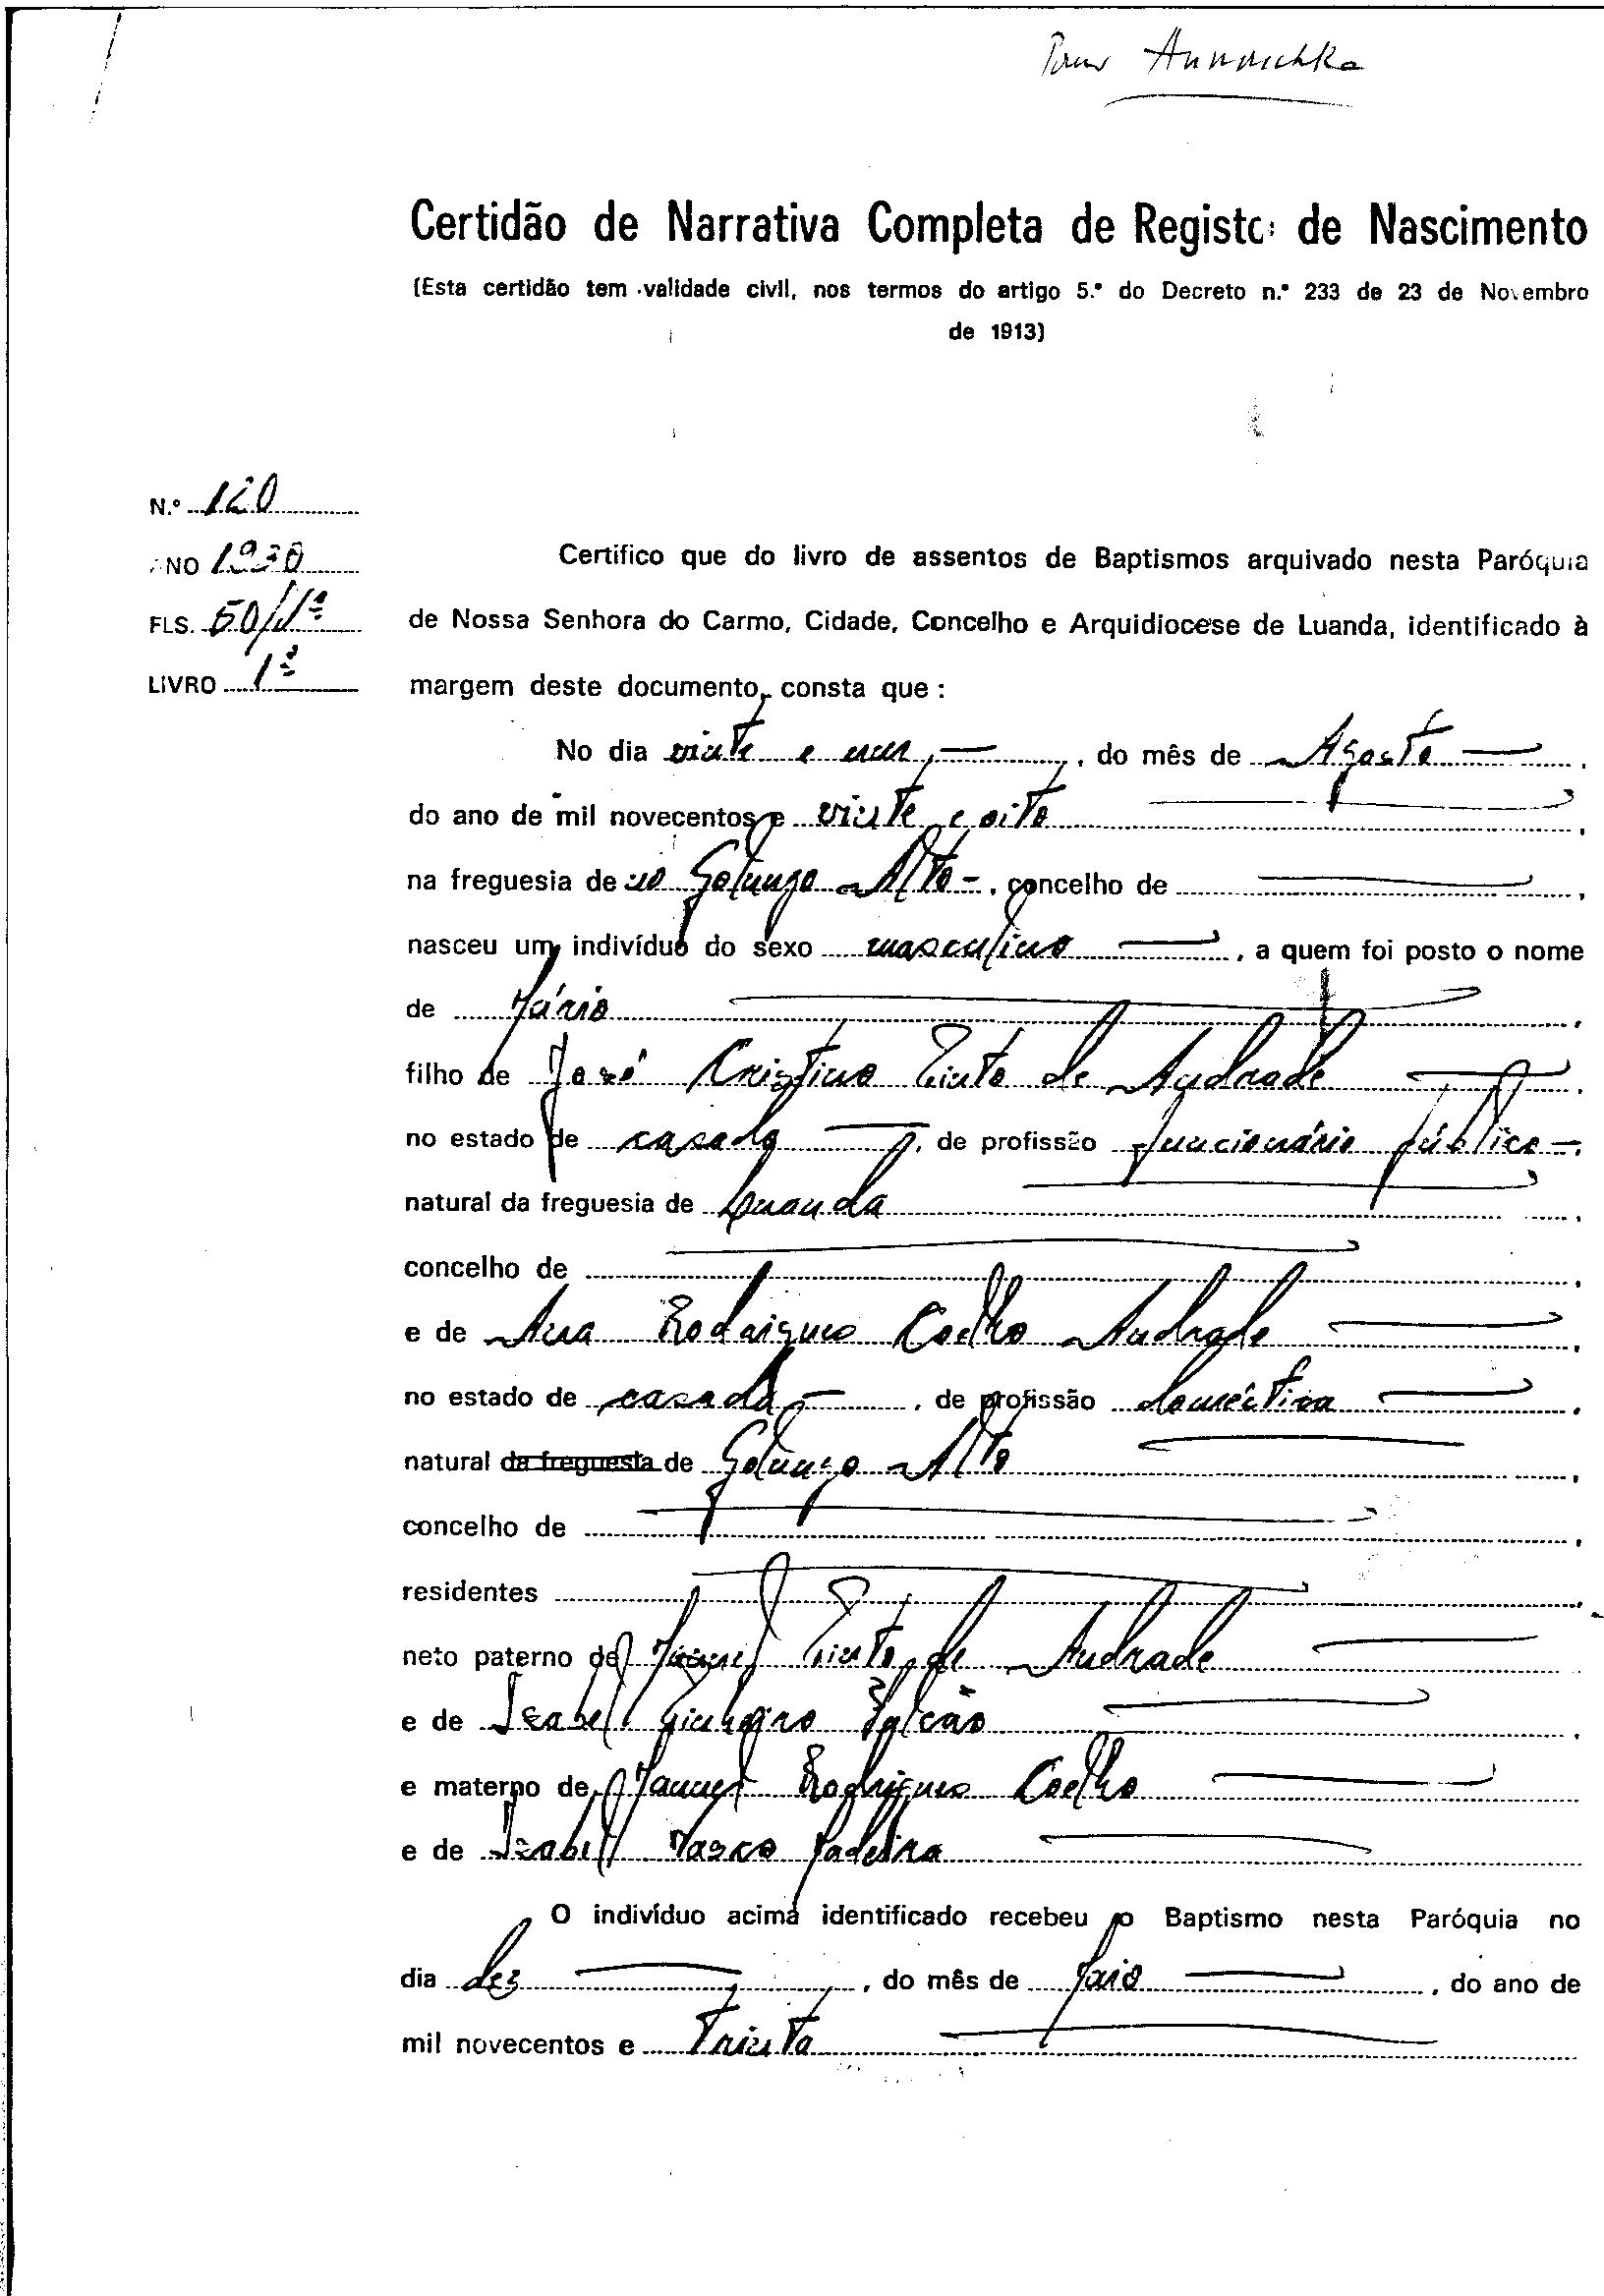 Pour Annouchka
Certidão de Narrativa Completa de Registo de Nascimento
(Esta certidão tem validade civil, nos termos do artigo 5.º do Decreto n.º 233 de 23 de Novembro
de 1913)
N.º 120
ANO 1930
FLS. 50/
LIVRO 1º
Certifico que do livro de assentos de Baptismos arquivado nesta Paróquia
de Nossa Senhora do Carmo, Cidade, Concelho e Arquidiocese de Luanda, identificado à
margem deste documento, consta que:
No dia vinte e um, do mês de Agosto,
do ano de mil novecentos e vinte e oito,
na freguesia de no Golungo Alto, concelho de,
nasceu um indivíduo do sexo masculino, a quem foi posto o nome
de Mário,
filho de José Cristino Pinto de Andrade,
no estado de casado, de profissão funcionário público,
natural da freguesia de Luanda,
concelho de,
e de Ana Rodrigues Coelho Andrade,
no estado de casada, de profissão doméstica,
natural da freguesia de Golungo Alto,
concelho de,
residentes.
neto paterno de Manuel Pinto de Andrade
e de Izabel Pinheiro Falcão,
e materno de Manuel Rodrigues Coelho
e de Izabel Madeira
O indivíduo acima identificado recebeu o Baptismo nesta Paróquia no
dia dez, do mês de Maio, do ano de
mil novecentos e trinta